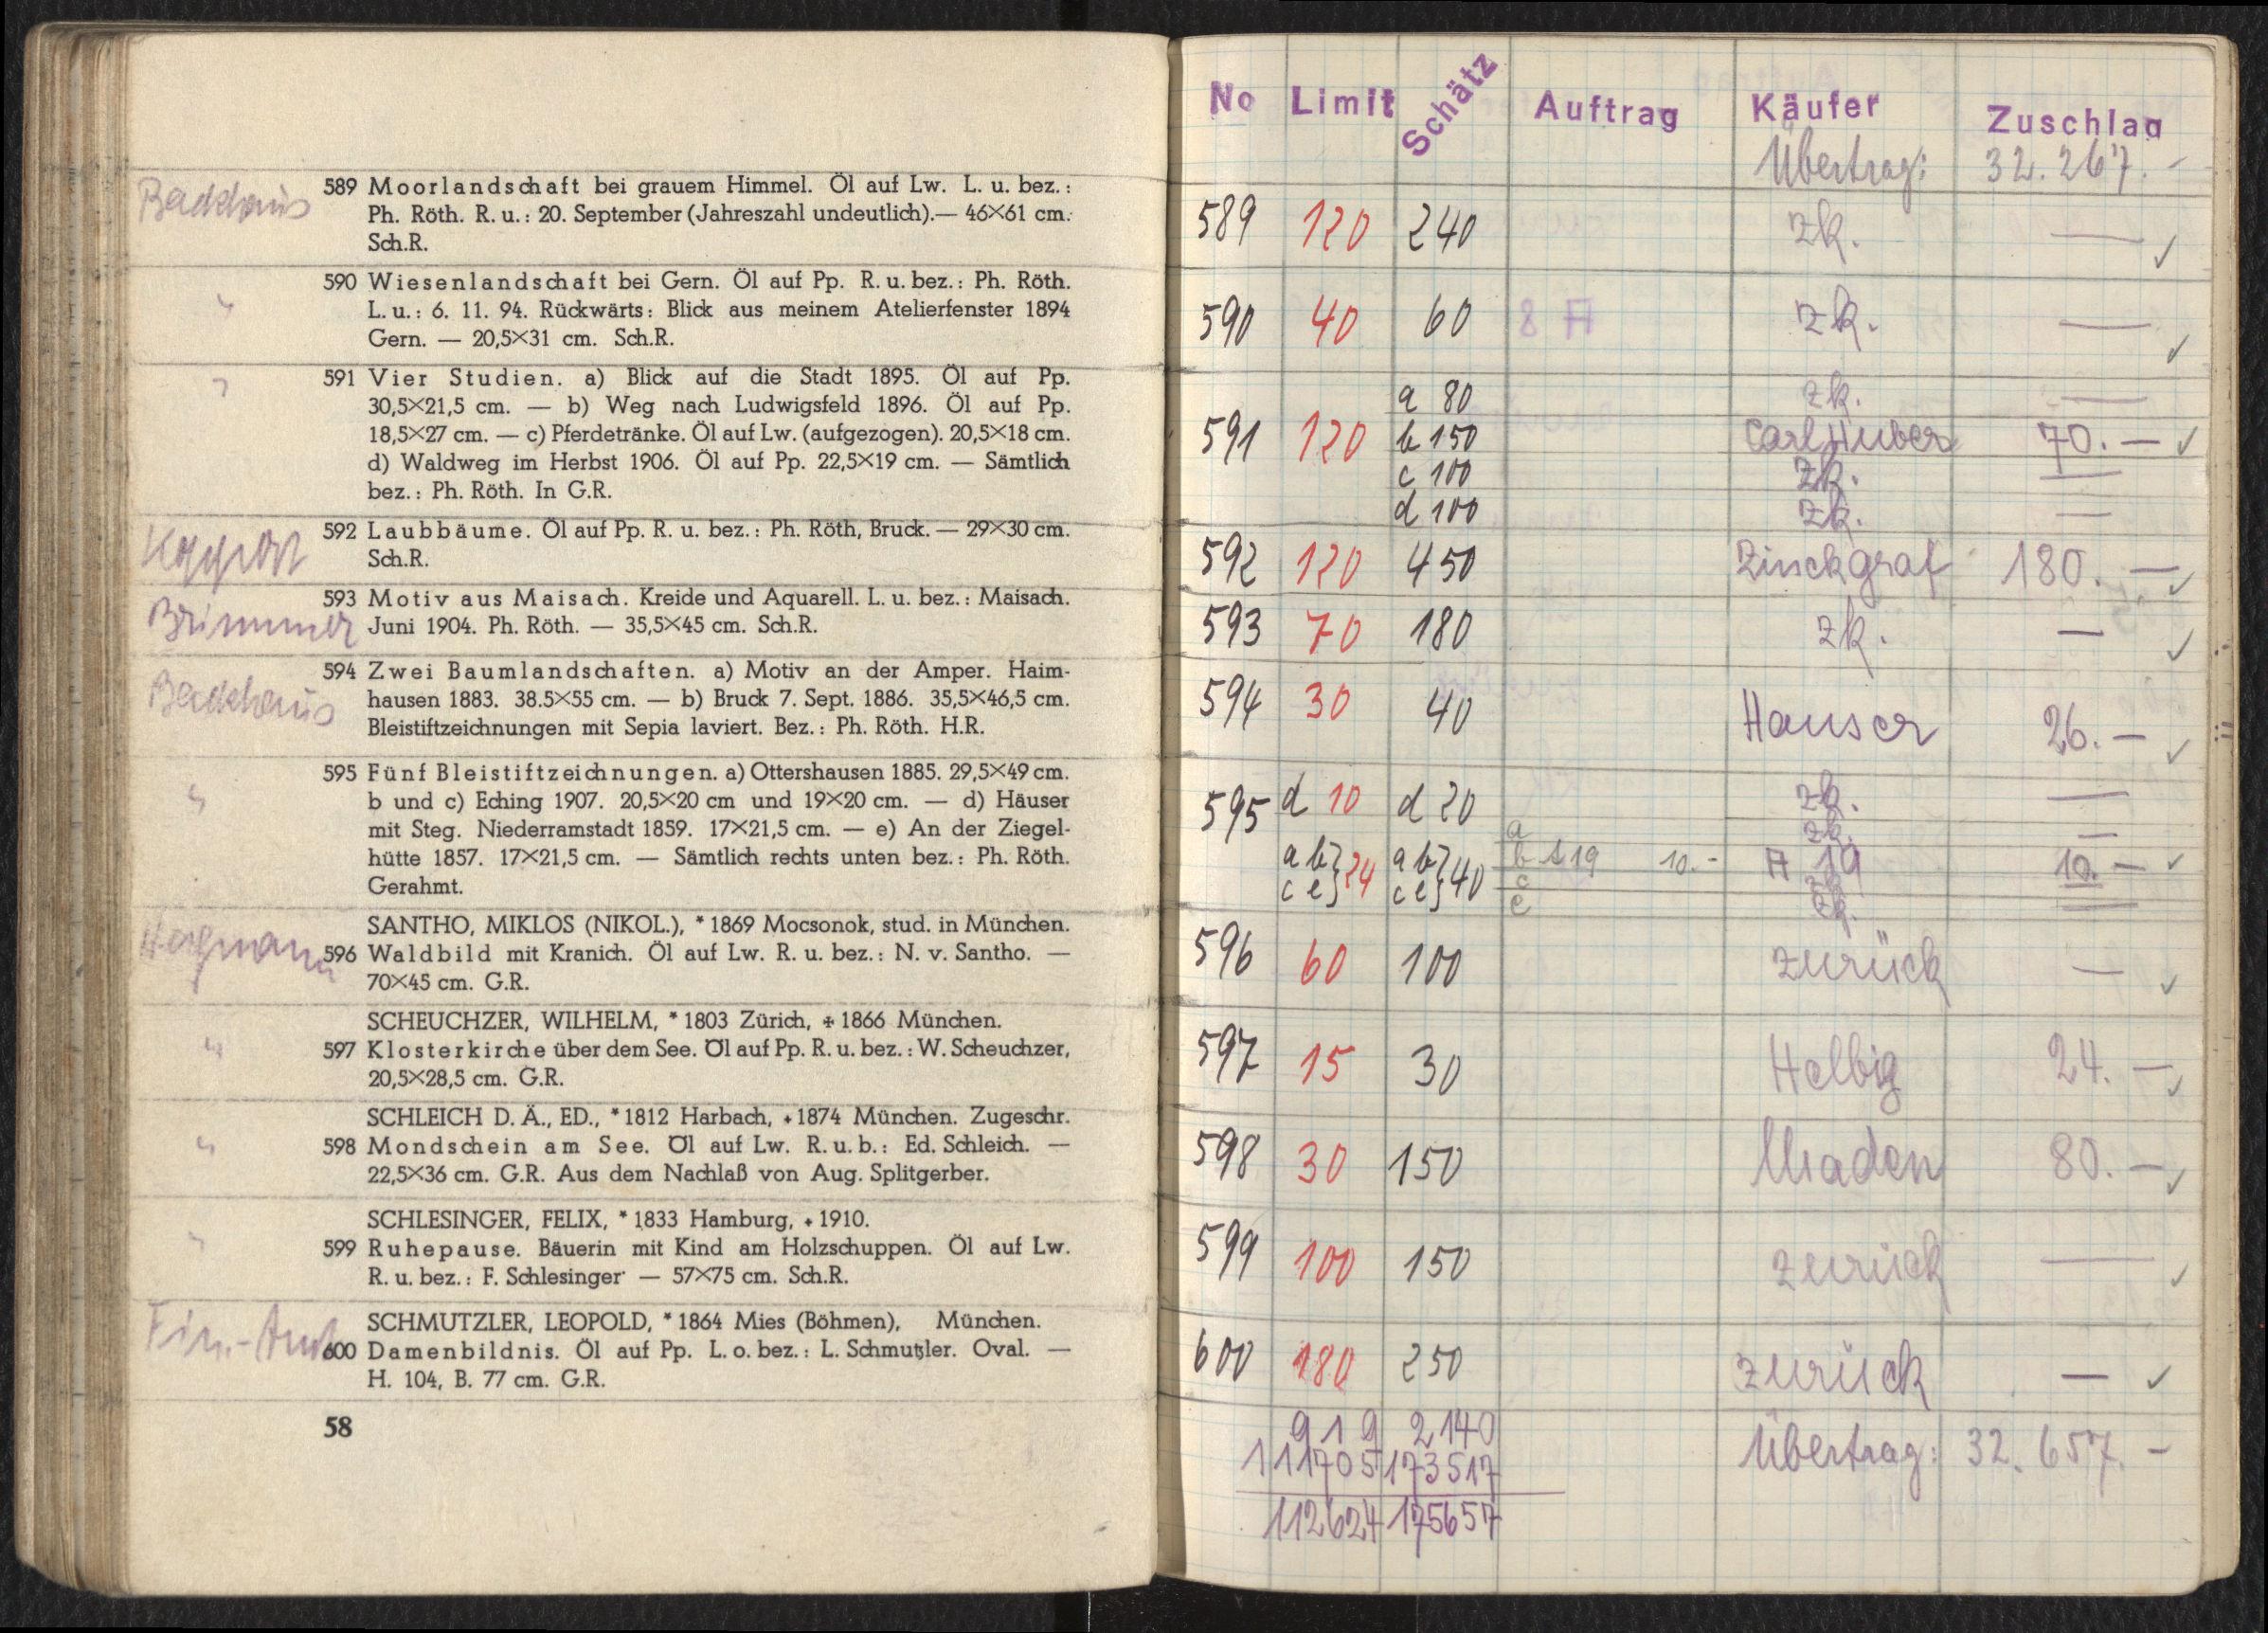 Backhaus
589 Moorlandschaft bei grauem Himmel. Öl auf Lw. L. u. bez.:
Ph. Röth. R. u.: 20. September (Jahreszahl undeutlich).— 46×61 cm.
Sch.R.
590 Wiesenlandschaft bei Gern. Öl auf Pp. R. u. bez.: Ph. Röth.
L. u.: 6. 11. 94. Rückwärts: Blick aus meinem Atelierfenster 1894
Gern. — 20,5×31 cm. Sch.R.
591 Vier Studien. a) Blick auf die Stadt 1895. Öl auf Pp.
30,5×21,5 cm. — b) Weg nach Ludwigsfeld 1896. Öl auf Pp.
18,5×27 cm. — c) Pferdetränke. Öl auf Lw. (aufgezogen). 20,5×18 cm.
d) Waldweg im Herbst 1906. Öl auf Pp. 22,5×19 cm. — Sämtlich
bez.: Ph. Röth. In G.R.
592 Laubbäume. Öl auf Pp. R. u. bez.: Ph. Röth, Bruck. — 29×30 cm.
Sch.R.
Brimmer
593 Motiv aus Maisach. Kreide und Aquarell. L. u. bez.: Maisach.
Juni 1904. Ph. Röth. — 35,5×45 cm. Sch.R.
Backhaus
594 Zwei Baumlandschaften. a) Motiv an der Amper. Haim-
hausen 1883. 38.5×55 cm. — b) Bruck 7. Sept. 1886. 35,5×46,5 cm.
Bleistiftzeichnungen mit Sepia laviert. Bez.: Ph. Röth. H.R.
595 Fünf Bleistiftzeichnungen. a) Ottershausen 1885. 29,5×49 cm.
b und c) Eching 1907. 20,5×20 cm und 19×20 cm. — d) Häuser
mit Steg. Niederramstadt 1859. 17×21,5 cm. — e) An der Ziegel-
hütte 1857. 17×21,5 cm. — Sämtlich rechts unten bez.: Ph. Röth.
Gerahmt.
SANTHO, MIKLOS (NIKOL.), * 1869 Mocsonok, stud. in München.
596 Waldbild mit Kranich. Öl auf Lw. R. u. bez.: N. v. Santho. —
70×45 cm. G.R.
SCHEUCHZER, WILHELM, * 1803 Zürich, + 1866 München.
597 Klosterkirche über dem See. Öl auf Pp. R. u. bez.: W. Scheuchzer,
20,5×28,5 cm. G.R.
SCHLEICH D. Ä., ED., * 1812 Harbach, + 1874 München. Zugeschr.
598 Mondschein am See. Öl auf Lw. R. u. b.: Ed. Schleich. —
22,5×36 cm. G.R. Aus dem Nachlaß von Aug. Splitgerber.
SCHLESINGER, FELIX, * 1833 Hamburg, + 1910.
599 Ruhepause. Bäuerin mit Kind am Holzschuppen. Öl auf Lw.
R. u. bez.: F. Schlesinger — 57×75 cm. Sch.R.
Fin.-Amt
SCHMUTZLER, LEOPOLD, * 1864 Mies (Böhmen), München.
600 Damenbildnis. Öl auf Pp. L. o. bez.: L. Schmutzler. Oval. —
H. 104, B. 77 cm. G.R.
58
No Limit Schätz Auftrag Käufer Zuschlag
Übertrag: 32.267.-
589 120 240 zk. — ✓
590 40 60 8 A zk. — ✓
a 80 zk. —
591 120 b 150 Carl Huber 70.— ✓
c 100 zk. —
d 100 zk. —
592 120 450 Zinckgraf 180.— ✓
593 70 180 zk. — ✓
594 30 40 Hauser 26.— ✓
595 d 10 d 20 zk. —
a zk. —
a b } 24 a b } 40 b A 19 10.- A 19 10.— ✓
c e } c e } c zk.
e zk. —
596 60 100 zurück — ✓
597 15 30 Helbig 24.— ✓
598 30 150 Maden 80.— ✓
599 100 150 zurück — ✓
600 180 250 zurück — ✓
919 2140
111705 173517
Übertrag: 32.657.-
112624 175657